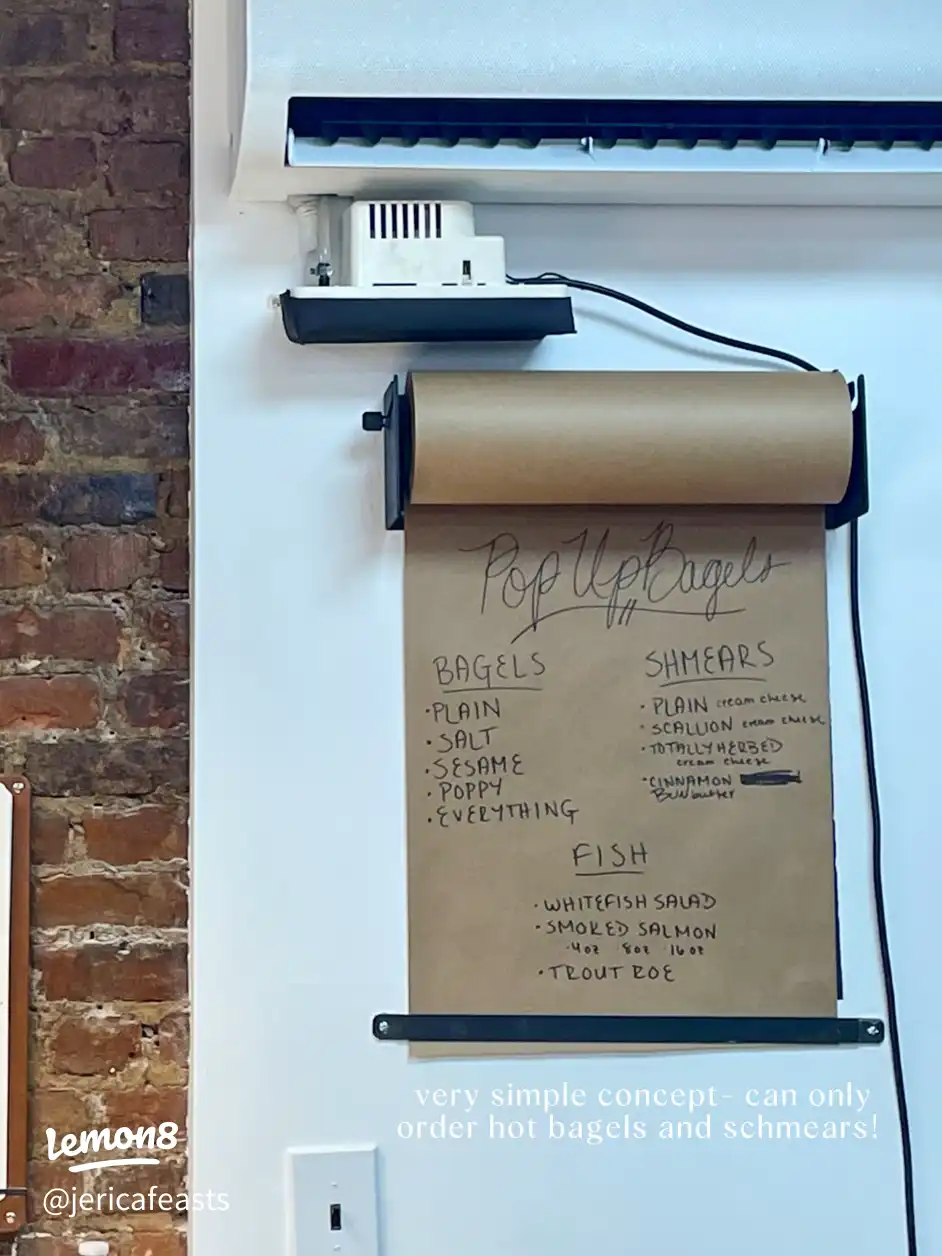 Pop Up Bagels
BAGELS
·PLAIN
·SALT
·SESAME
·POPPY
·EVERYTHING
SHMEARS
·PLAIN cream cheese
·SCALLION cream cheese
·TOTALLY HERBED
cream cheese
·CINNAMON
BUN butter
FISH
·WHITEFISH SALAD
·SMOKED SALMON
·4oz ·8oz ·16oz
·TROUT ROE
very simple concept- can only
order hot bagels and schmears!
lemon8
@jericafeasts